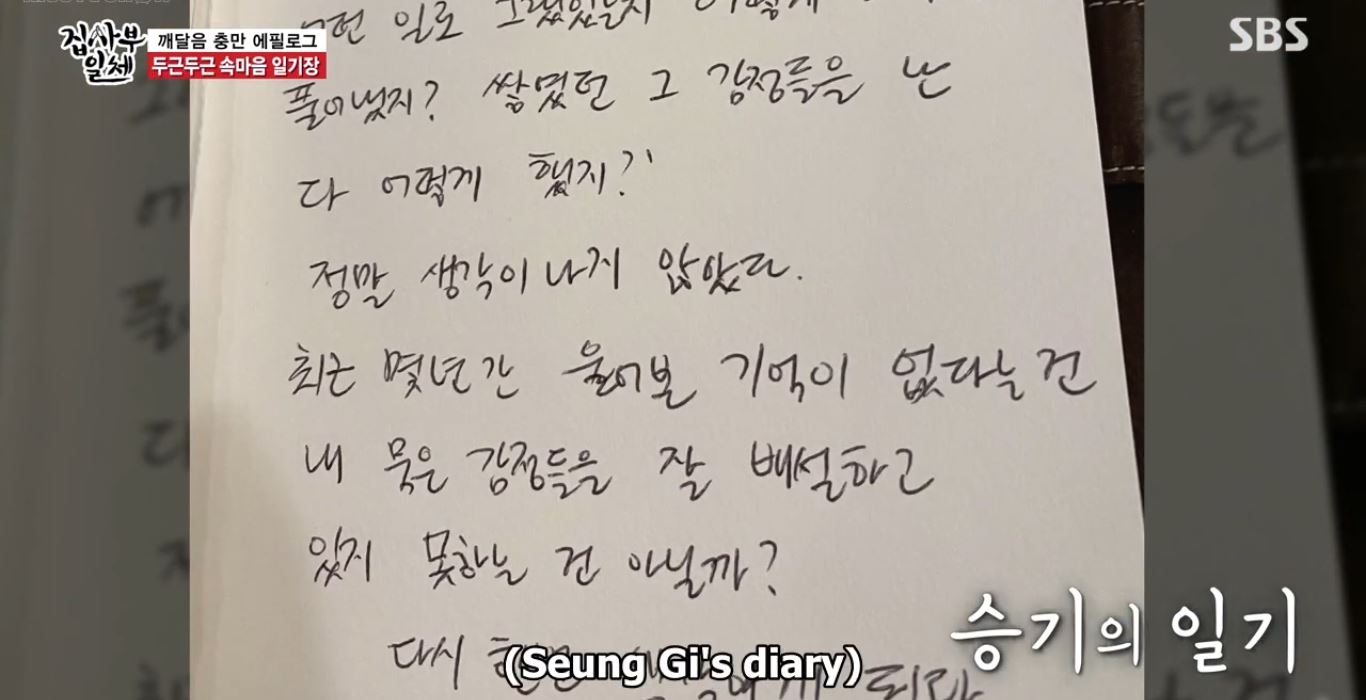 집사부
일체
깨달음 충만 에필로그
두근두근 속마음 일기장
SBS
일로
풀어냈지? 쌓였던 그 감정들을 난
다 어떻게 했지?'
정말 생각이 나지 않았다.
최근 몇년간 울어본 기억이 없다는 건
내 묵은 감정들을 잘 배설하고
있지 못하는 건 아닐까?
다시
승기의 일기
(Seung Gi's diary)